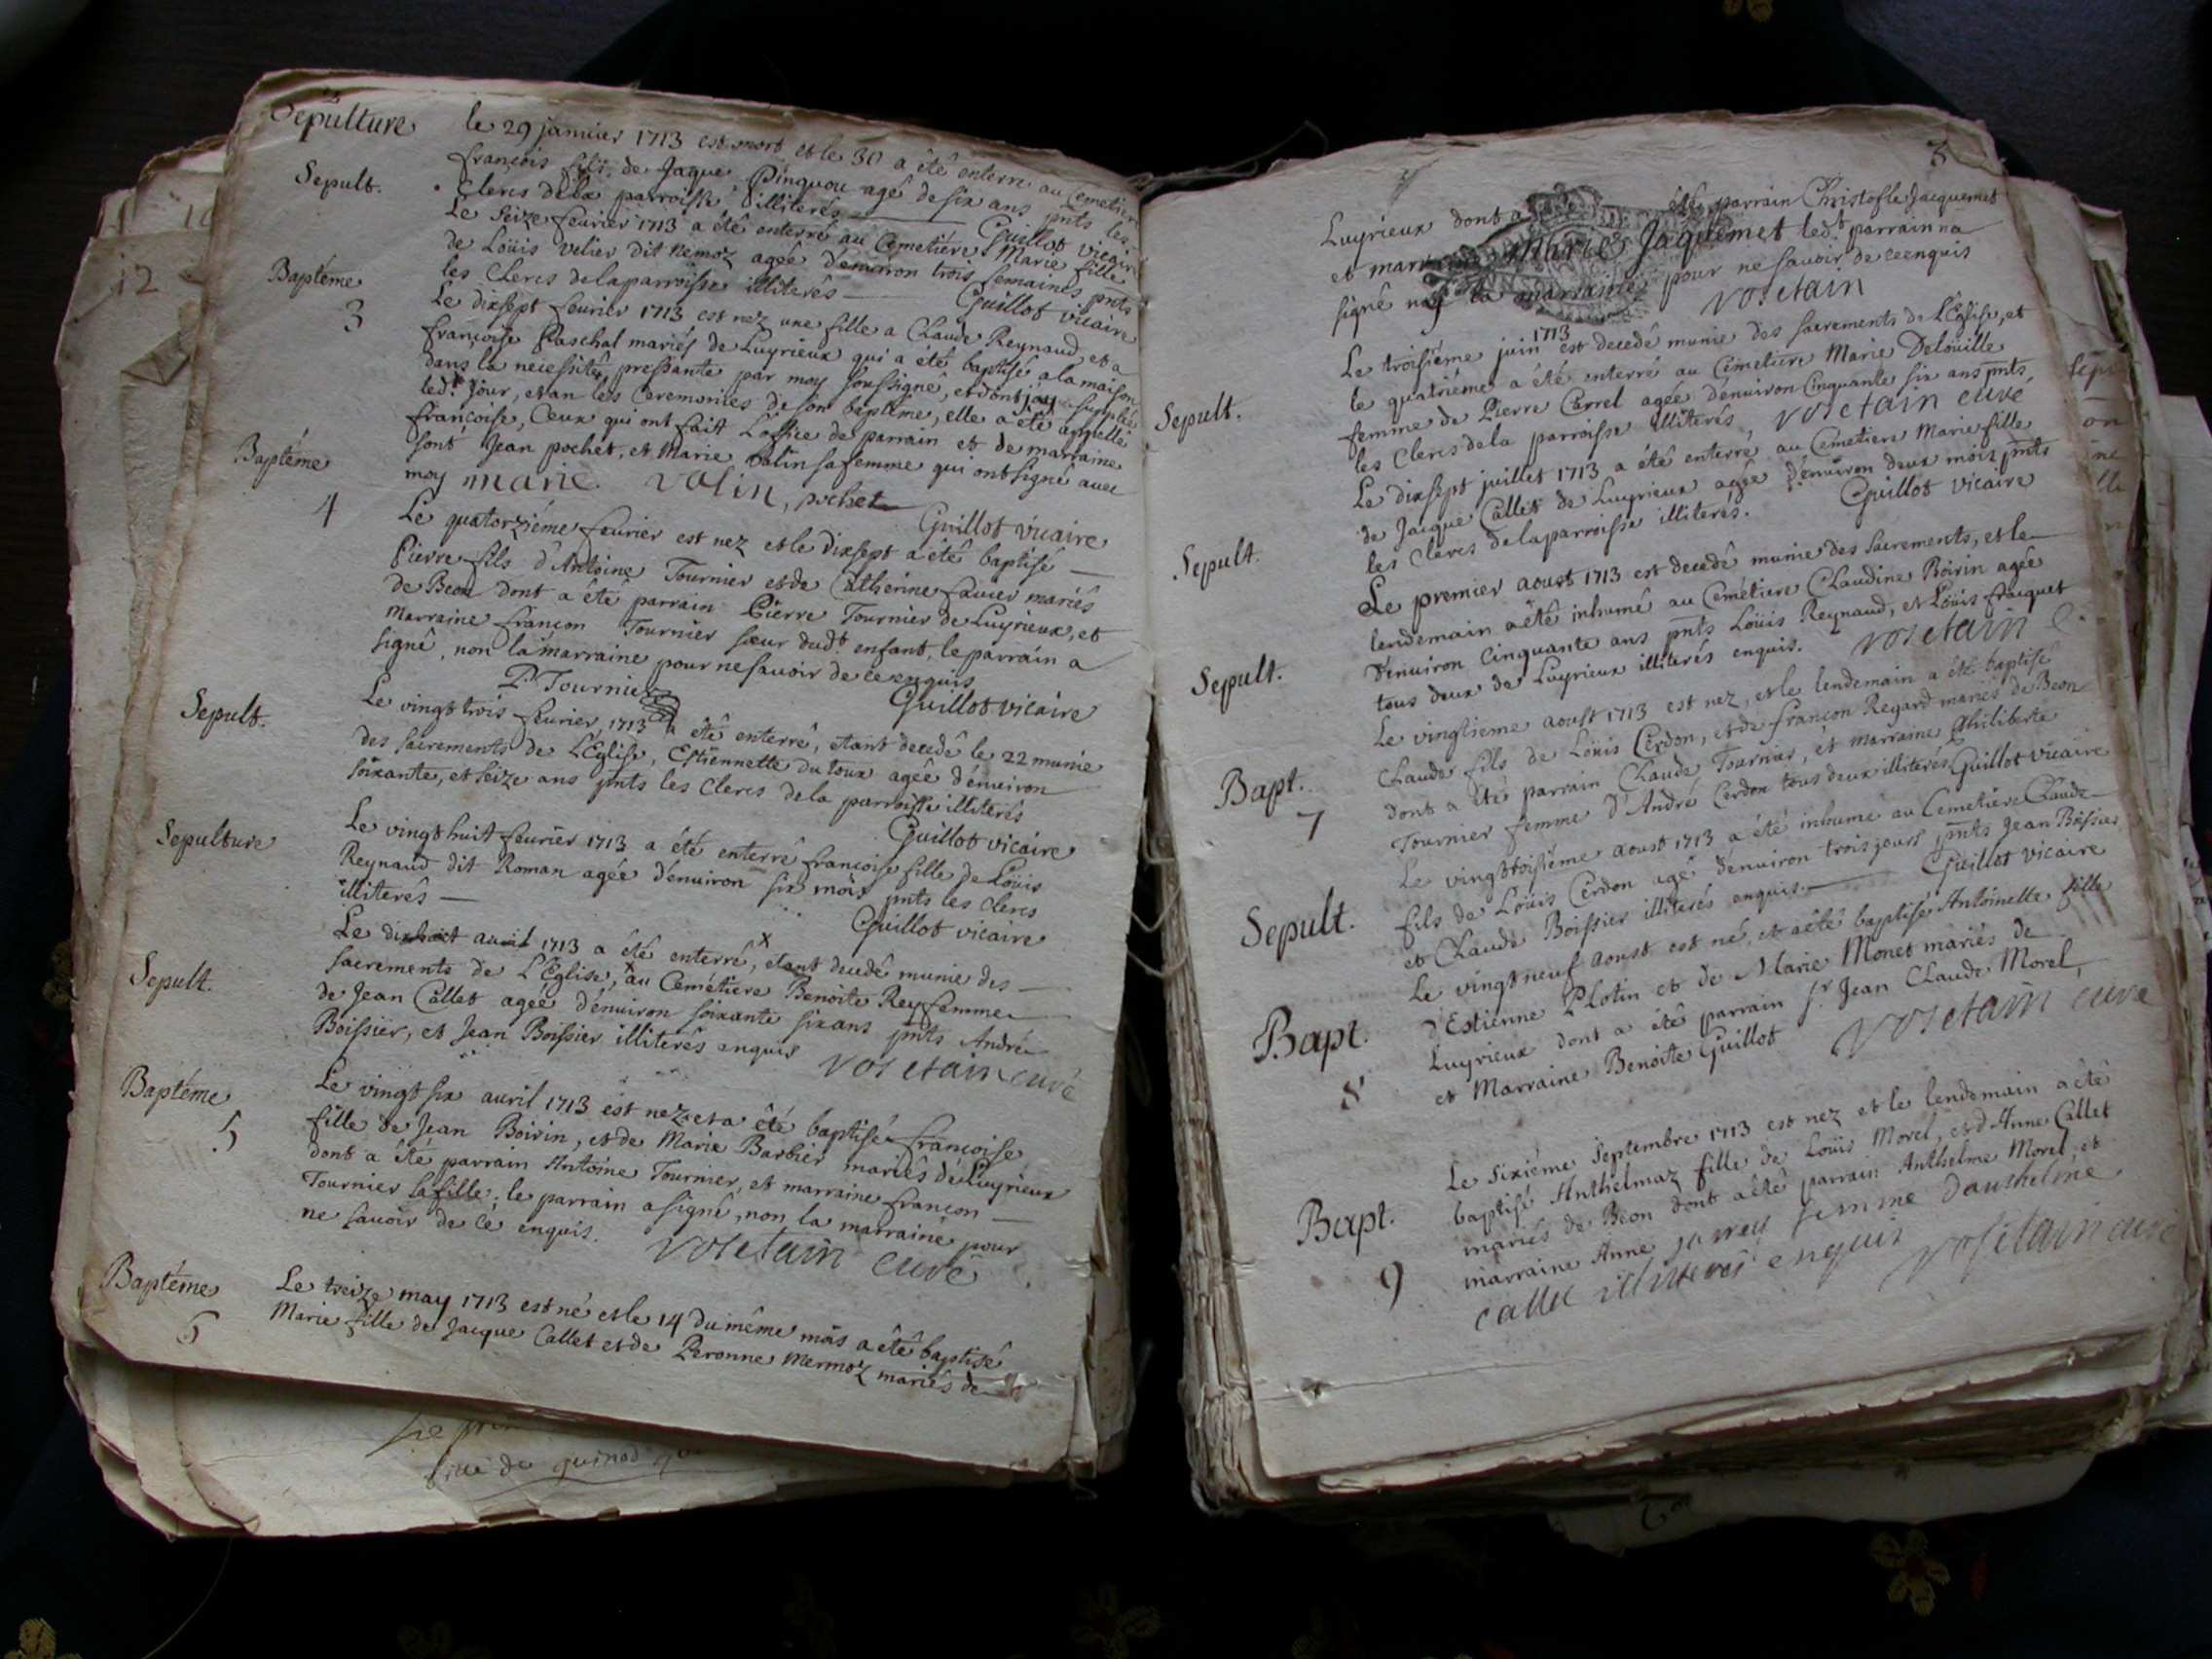 Sepulture
le 29 januier 1713 est mort et le 30 a êtê enterre au Cemetiere
françois fils de Jaque Pinquou agê de six ans pnts les
Clercs de la parroisse illiterês
Guillot vicaire
Sepult.
Le seize feurier 1713 a êtê enterrê au Cemetiére Marie fille
de Loüis velier dit Nemoz agêe d'enuiron trois semaines pnts
les Clercs de la parroisse illiterês
Guillot vicaire
Baptéme
3
Le dixsept feurier 1713 est nez une fille a Claude Reynaud, et a
françoise Paschal mariés de Luyrieux qui a êtê baptisê a la maison
dans la necessitê pressante par moy soussignê, et dont jay suppléé
led.t Jour, et an les Ceremonies de son baptême, elle a êtê appellê
françoise, Ceux qui ont fait L'office de parrain et de marraine
sont Jean pochet, et Marie Balin sa femme qui ont signê avec
moy marie volin, pochet
Guillot vicaire
Baptéme
4
Le quatorziéme feurier est nez et le dixsept a êtê baptisê
Pierre fils d'Antoine Tournier et de Catherine favier mariés
de Beon dont a êtê parrain Pierre Tournier de Luyrieux, et
Marraine françon Tournier sœur dud.t enfant, le parrain a
signê, non la marraine pour ne savoir de ce enquis
P Tournier
Guillot vicaire
Sepult.
Le vingt trois feurier 1713 a êtê enterrê, etant decedê le 22 munie
des sacrements de L'Église, Estiennette Du toux agêe d'enuiron
soixante, et seize ans pnts les Clercs de la parroisse illiterês
Guillot vicaire
Sepulture
Le vingt huit feurier 1713 a été enterré françoise fille de Loüis
Reynaud dit Roman agée d'enuiron six mois pnts les clercs
illiterês
Guillot vicaire
Sepult.
Le dixhuit auril 1713 a été enterré, x etant decedê munie des
sacrements de L'Église, x au Cemétiere Benoite Rey femme
de Jean Callet agée d'enuiron soixante six ans pnts André
Boissier, et Jean Boissier illiterés enquis
Vosetain curé
Baptéme
5
Le vingt six auril 1713 est nez et a êtê baptisé françoise
fille de Jean Boirin, et de Marie Barbier mariés de Luyrieux
dont a êtê parrain Antoine Tournier, et marraine françon
Tournier sa fille; le parrain a signê, non la marraine pour
ne savoir de ce enquis.
Vosetain Curé
Baptéme
6
Le treize may 1713 est né et le 14 du méme mois a êtê baptisê
Marie fille de Jacque Callet et de Peronne Mermoz mariés de
3
Luyrieux dont a été parrain Christofle Jacquemet
et marraine Marie Jaquemet led.t parrain n'a
signê ny la marraine pour ne savoir de ce enquis
Vosetain
Sepult.
Le troisiéme juin 1713 est decedê munie des sacrements de L'Église, et
le quatriéme a êtê enterré au Cémetiere Marie Deloüille
femme de Pierre Carrel agée d'enuiron Cinquante six ans pnts
les clercs de la parroisse illiterés, Vosetain curé
Sepult.
Le dixsept juillet 1713 a été enterré au Cemetiere Marie fille
de Jacque Callet de Luyrieux agée d'enuiron deux mois pnts
les Clercs de la parroisse illiterés.
Guillot vicaire
Sepult.
Le premier aoust 1713 est decedê munie des sacrements, et le
lendemain a êtê inhumé au Cemétiere Claudine Boirin agée
d'enuiron Cinquante ans pnts Loüis Reynaud, et Loüis Jacquet
tous deux de Luyrieux illiterés enquis. Vosetain C.
Bapt.
7
Le vingtieme aoust 1713 est nez, et le lendemain a été baptisé
Claude fils de Loüis Cerdon, et de françon Regard mariés de Beon
dont a été parrain Claude Tournier, et marraine Philiberte
Tournier femme d'André Cerdon tous deux illiterés Guillot vicaire
Sepult.
Le vingt troisiéme aoust 1713 a été inhumé au Cemetiere Claude
fils de Loüis Cerdon agé d'enuiron trois jours pnts Jean Boissier
et Claude Boissier illiterés enquis. Guillot vicaire
Bapt.
8
Le vingt neuf aoust est né, et a êtê baptisé Antoinette fille
d'Estienne Plotin et de Marie Monet mariés de
Luyrieux dont a été parrain s.r Jean Claude Morel,
et Marraine Benoite Guillot Vosetain curé
Bapt.
9
Le sixiéme septembre 1713 est nez et le lendemain a êté
baptisé Anthelmaz fille de Loüis Morel, et d'Anne Callet
mariés de Beon dont a êtê parrain Anthelme Morel, et
marraine Anne femme d'anthelme
callet illiterés enquis Vosetain curé